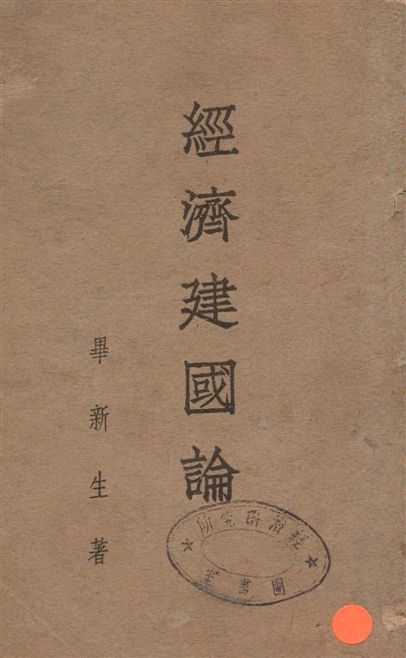 經濟建國論
畢新生著
經濟研究所
圖書室